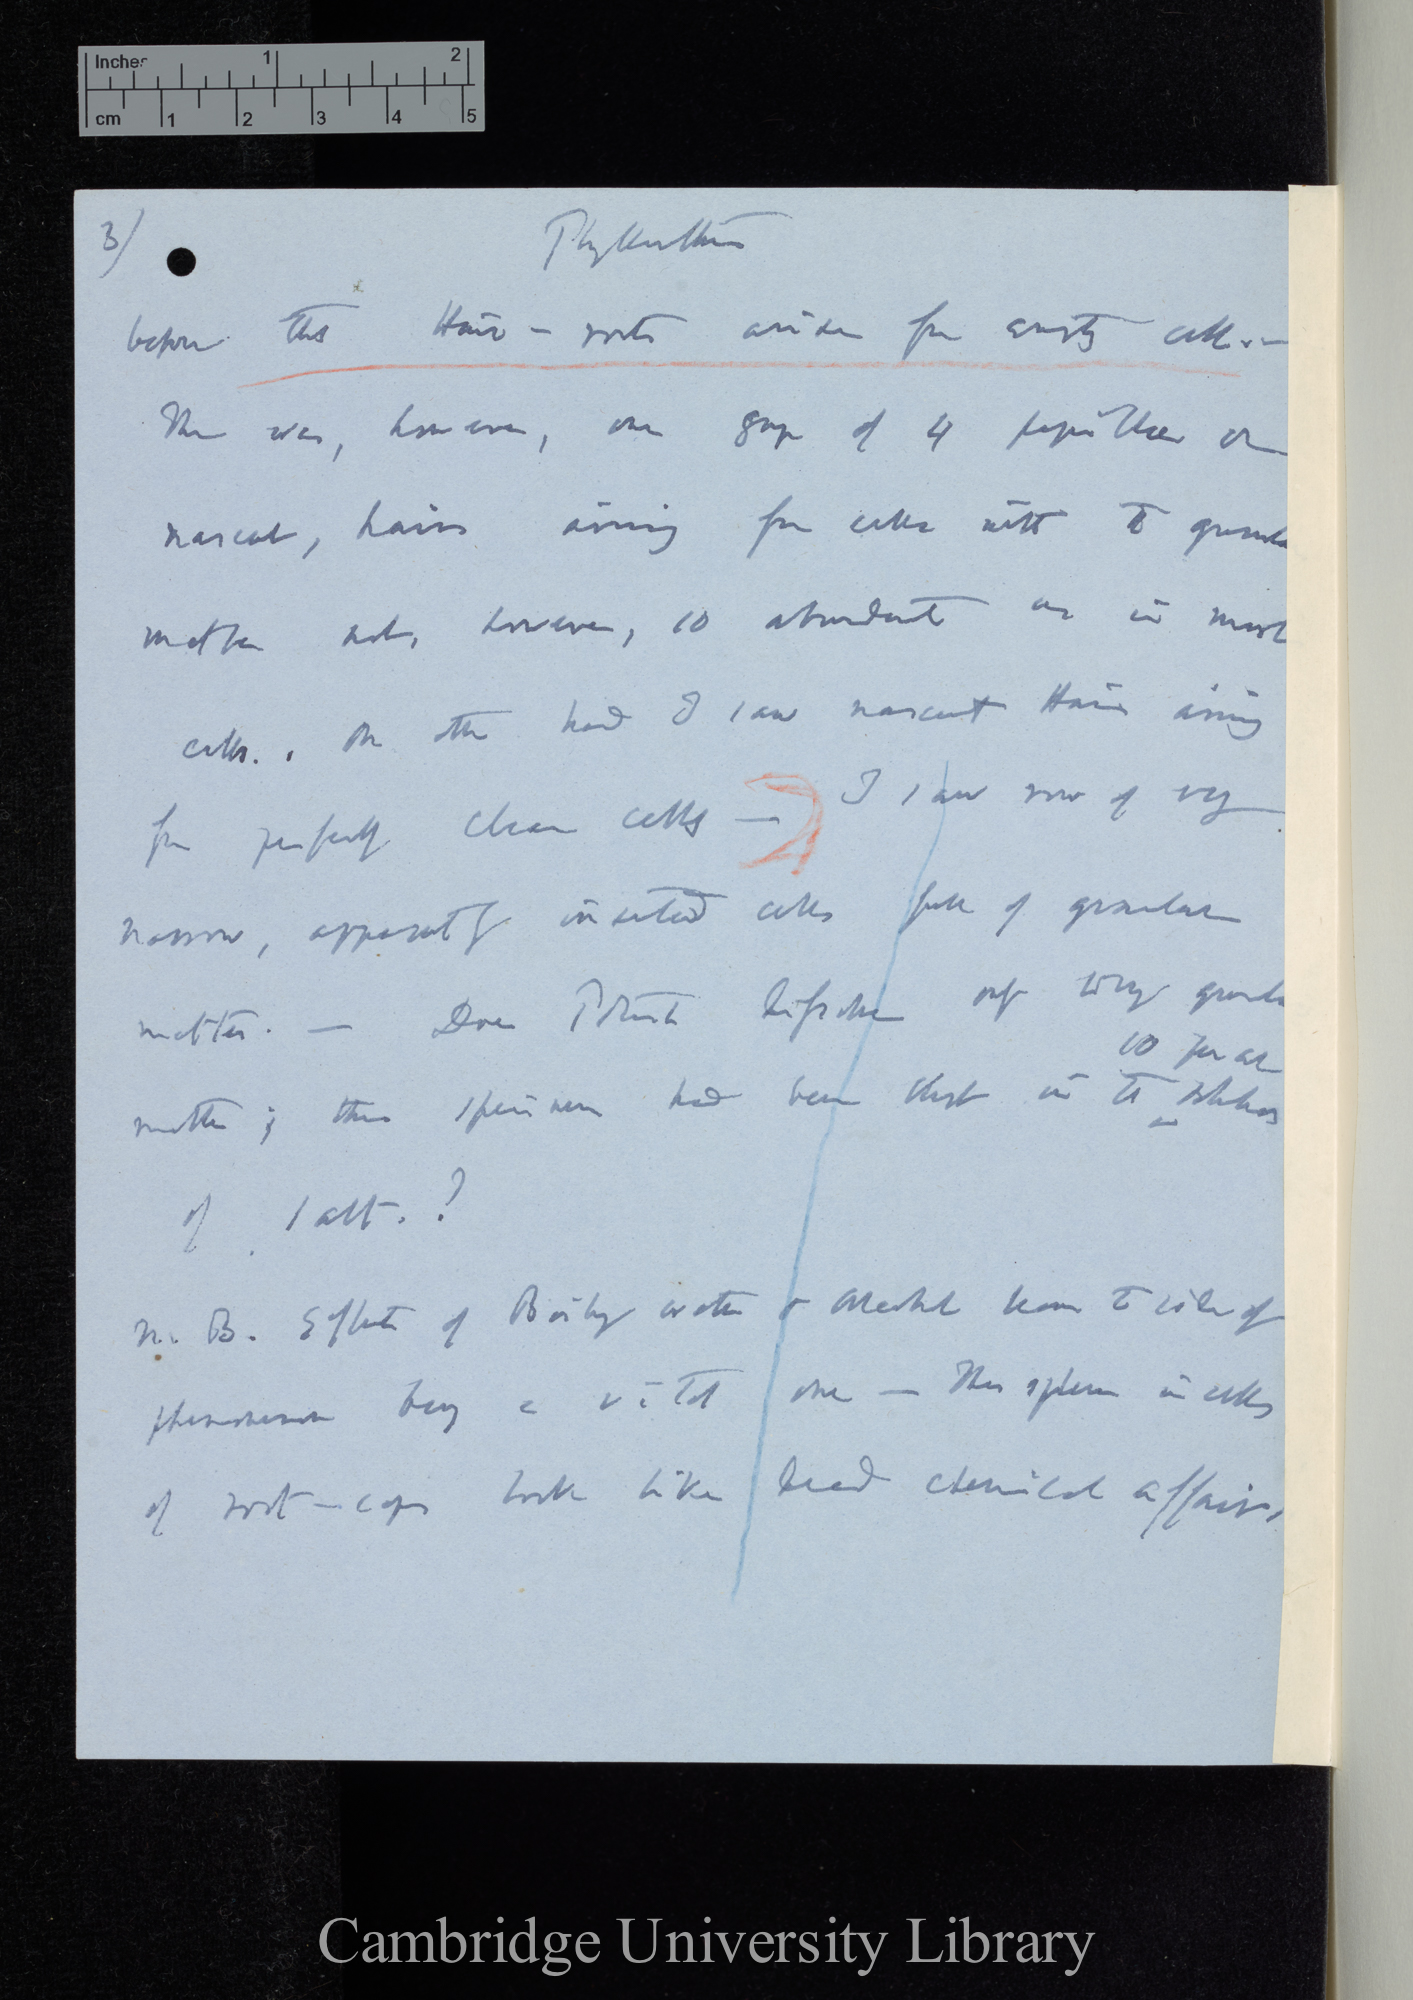 Inches 1 2
cm 1 2 3 4 5
3/ Phyllanthus
before this Hair-roots arise from empty cells. —
There was, however, one group of 4 papillae or
nascent, hairs arising from cells with the granular
matter not, however, so abundant as in most
cells. On other hand I saw nascent Hairs arising
from perfectly clear cells — I saw row of very
narrow, apparently cells full of granular
matter. — Does Potash dissolve only granular
matter; this specimen had been kept in the
so far as
of salt. ?
N. B. Effects of Boiling water & alcohol bears to idea of
phenomenon being a vital one — The spheres in cells
of root-caps look like dead chemical affairs,
Cambridge University Library